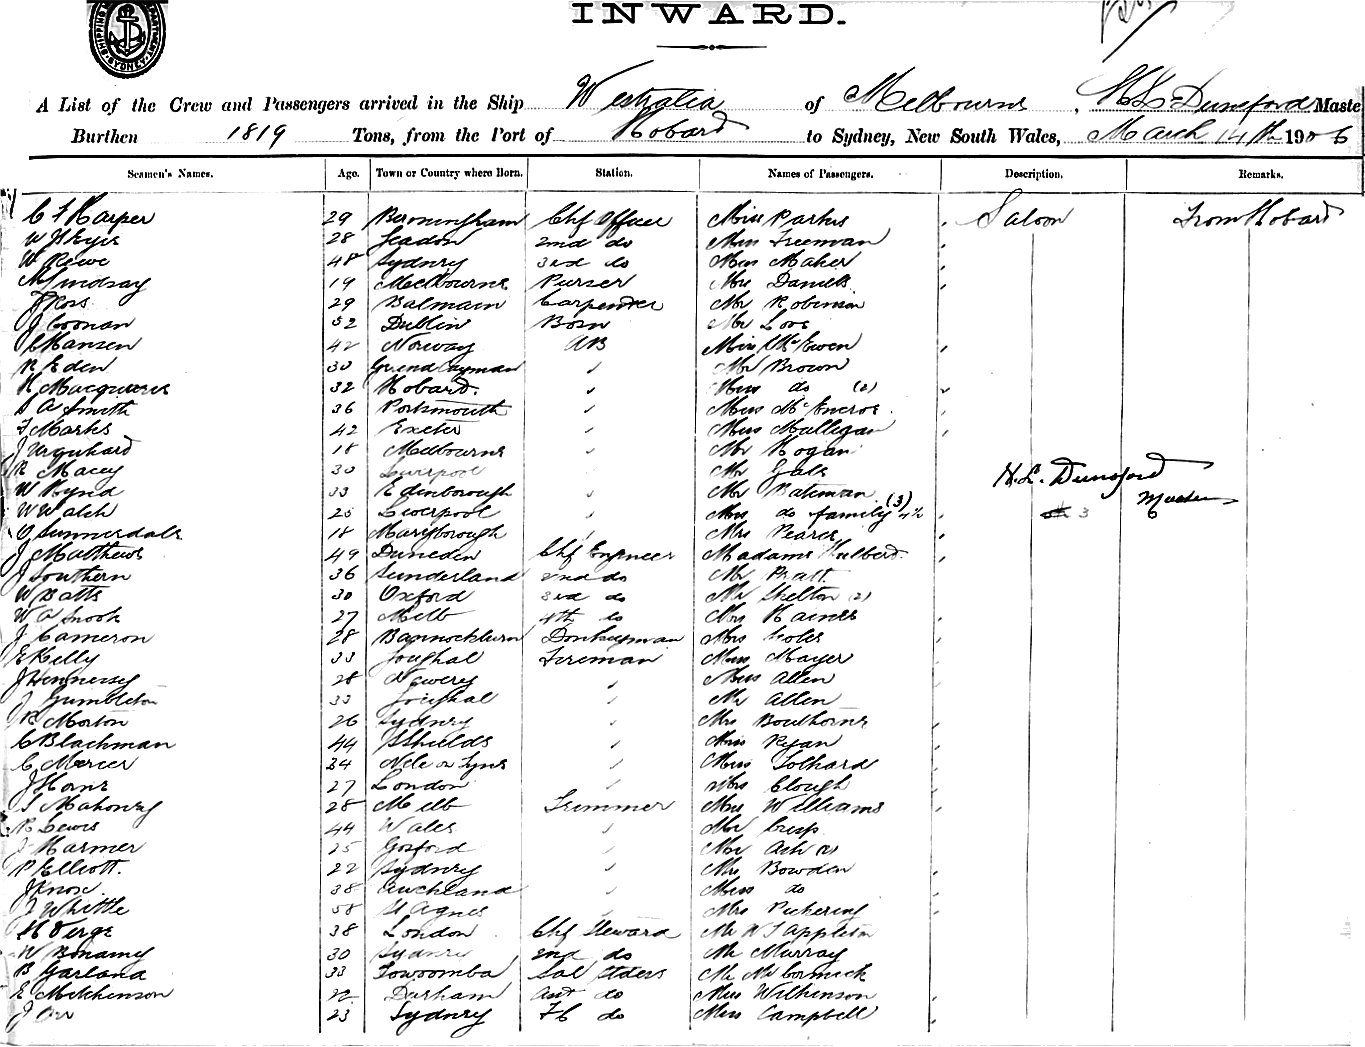 INWARD.
A List of the Crew and Passengers arrived in the Ship Westralia of Melbourne, H L Dunsford Maste
Burthen 1819 Tons, from the Port of Hobart to Sydney, New South Wales, March 14th 1906
Seamen's Names. Age. Town or Country where Born. Station. Names of Passengers. Description. Remarks.
C F Harper 29 Birmingham Chf Officer Miss Parkes Saloon From Hobart
W H Eyre 28 London 2nd do Miss Freeman
W Rewe 48 Sydney 3rd do Miss Maher
Lindsay 19 Melbourne Purser Mrs Daniels
Ross 29 Balmain Carpenter Mr Robinson
J Coonan 52 Dublin Bosn Mr Love
Hansen 42 Norway AB Miss McEwen
R Eden 30 Grand Cayman " Mr Brown
H Macquarie 32 Hobart. " Miss do (2)
A Smith 36 Portsmouth " Miss McEncroe
F Marks 42 Exeter " Miss Mulligan
J Urquhard 18 Melbourne " Mr Hogan
R Macey 30 Liverpool " Mr Gale H.L. Dunsford
W Hynd 33 Edinborough " Mr Bateman Master
W Walsh 25 Liverpool " Mrs do family (3)
O Sunnerdale 18 Maryborough Mrs Pearce
J Matthews 49 Duneden Chf Engineer Madame Hulbert
J Southern 36 Sunderland 2nd do Mr Pratt
W Batts 30 Oxford 3rd do Mr Skelton (2)
W A Snook 27 Melb 4th do Mrs Haines
J Cameron 28 Bannockburn Donkeyman Mrs Scoles
E Kelly 33 Youghal Fireman Miss Mayer
J Hennessy 28 Newery " Miss Allen
J Gumbleton 33 Youghal " Mr Allen
R Morton 26 Sydney " Mrs Bouthorne
C Blachman 44 S Shields " Miss Ryan
C Mercer 34 Ncle on Tyne " Miss Tolhard
J Horne 27 London " Mrs Clough
Mahoney 28 Melb Trimmer Mrs Williams
R Lewis 44 Wales " Mr Crisp
J Harmer 25 Gosford " Mr Ash (2)
P Elliott. 22 Sydney " Mrs Bowden
J Knox. 38 Auckland " Miss do
J Whittle 58 St Agnes " Mrs Pickering
H Verge 38 London Chf Steward Mr W J Appleton
W Bonamy 30 Sydney 2nd do Mr Murray
B Garland 33 Towoomba Sal Stders Mr McCormick
E Mitchinson 22 Durham Asst do Miss Wilkinson
J Orr 23 Sydney FC do Miss Campbell